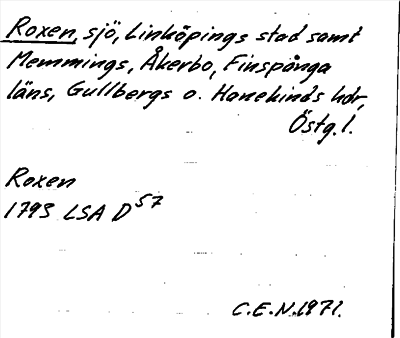 Roxen, sjö, Linköpings stad samt
Memmings, Åkerbo, Finspånga
läns, Gullbergs o. Hanekinds hdr,
Östg. l.
Roxen
1793 LSA D 57
C.E.N. 1971.